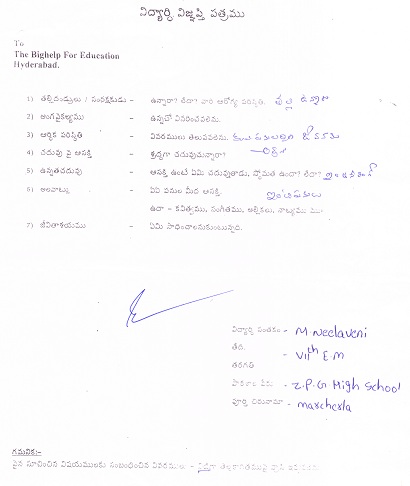 విద్యార్థి విజ్ఞప్తి పత్రము
To
The Bighelp For Education
Hyderabad.
1) తల్లిదండ్రులు / సంరక్షకుడు - ఉన్నారా? లేదా? వారి ఆరోగ్య పరిస్థితి.
2) అంగవైకల్యము - ఉన్నచో వివరించవలెను.
3) ఆర్థిక పరిస్థితి - వివరములు తెలుపవలెను.
4) చదువు పై ఆసక్తి - శ్రద్ధగా చదువుచున్నారా?
5) ఉన్నతచదువు - ఆసక్తి ఉంటే ఏమి చదువుతాడు, స్తోమత ఉందా? లేదా?
6) అలవాట్లు - ఏఏ పనుల మీద ఆసక్తి. ఇంటిపనులు
ఉదా - కవిత్వము, సంగీతము, అల్లికలు, నాట్యము
7) జీవితాశయము - ఏమి సాధించాలనుకుంటున్నది.
విద్యార్థి సంతకం - M. Neelaveni
తేది. -
తరగతి VIIth E.M
పాఠశాల పేరు - Z.P.G High School
పూర్తి చిరునామా - marcherla
గమనిక:-
పైన సూచించిన విషయములకు సంబంధించిన వివరములు -